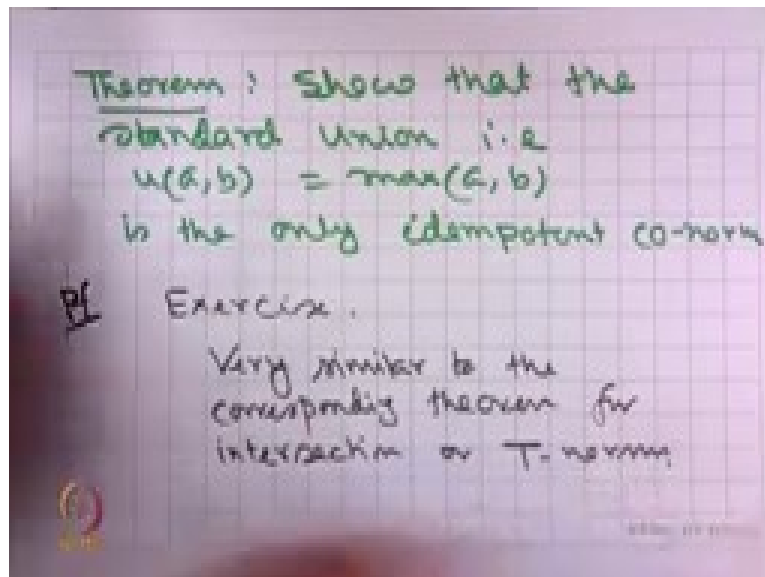 Theorem : Show that the
standard Union i.e
u(a,b) = max(a,b)
is the only idempotent co-norm
Pf Exercise.
Very similar to the
correspondig theorem for
intersection or T-norms